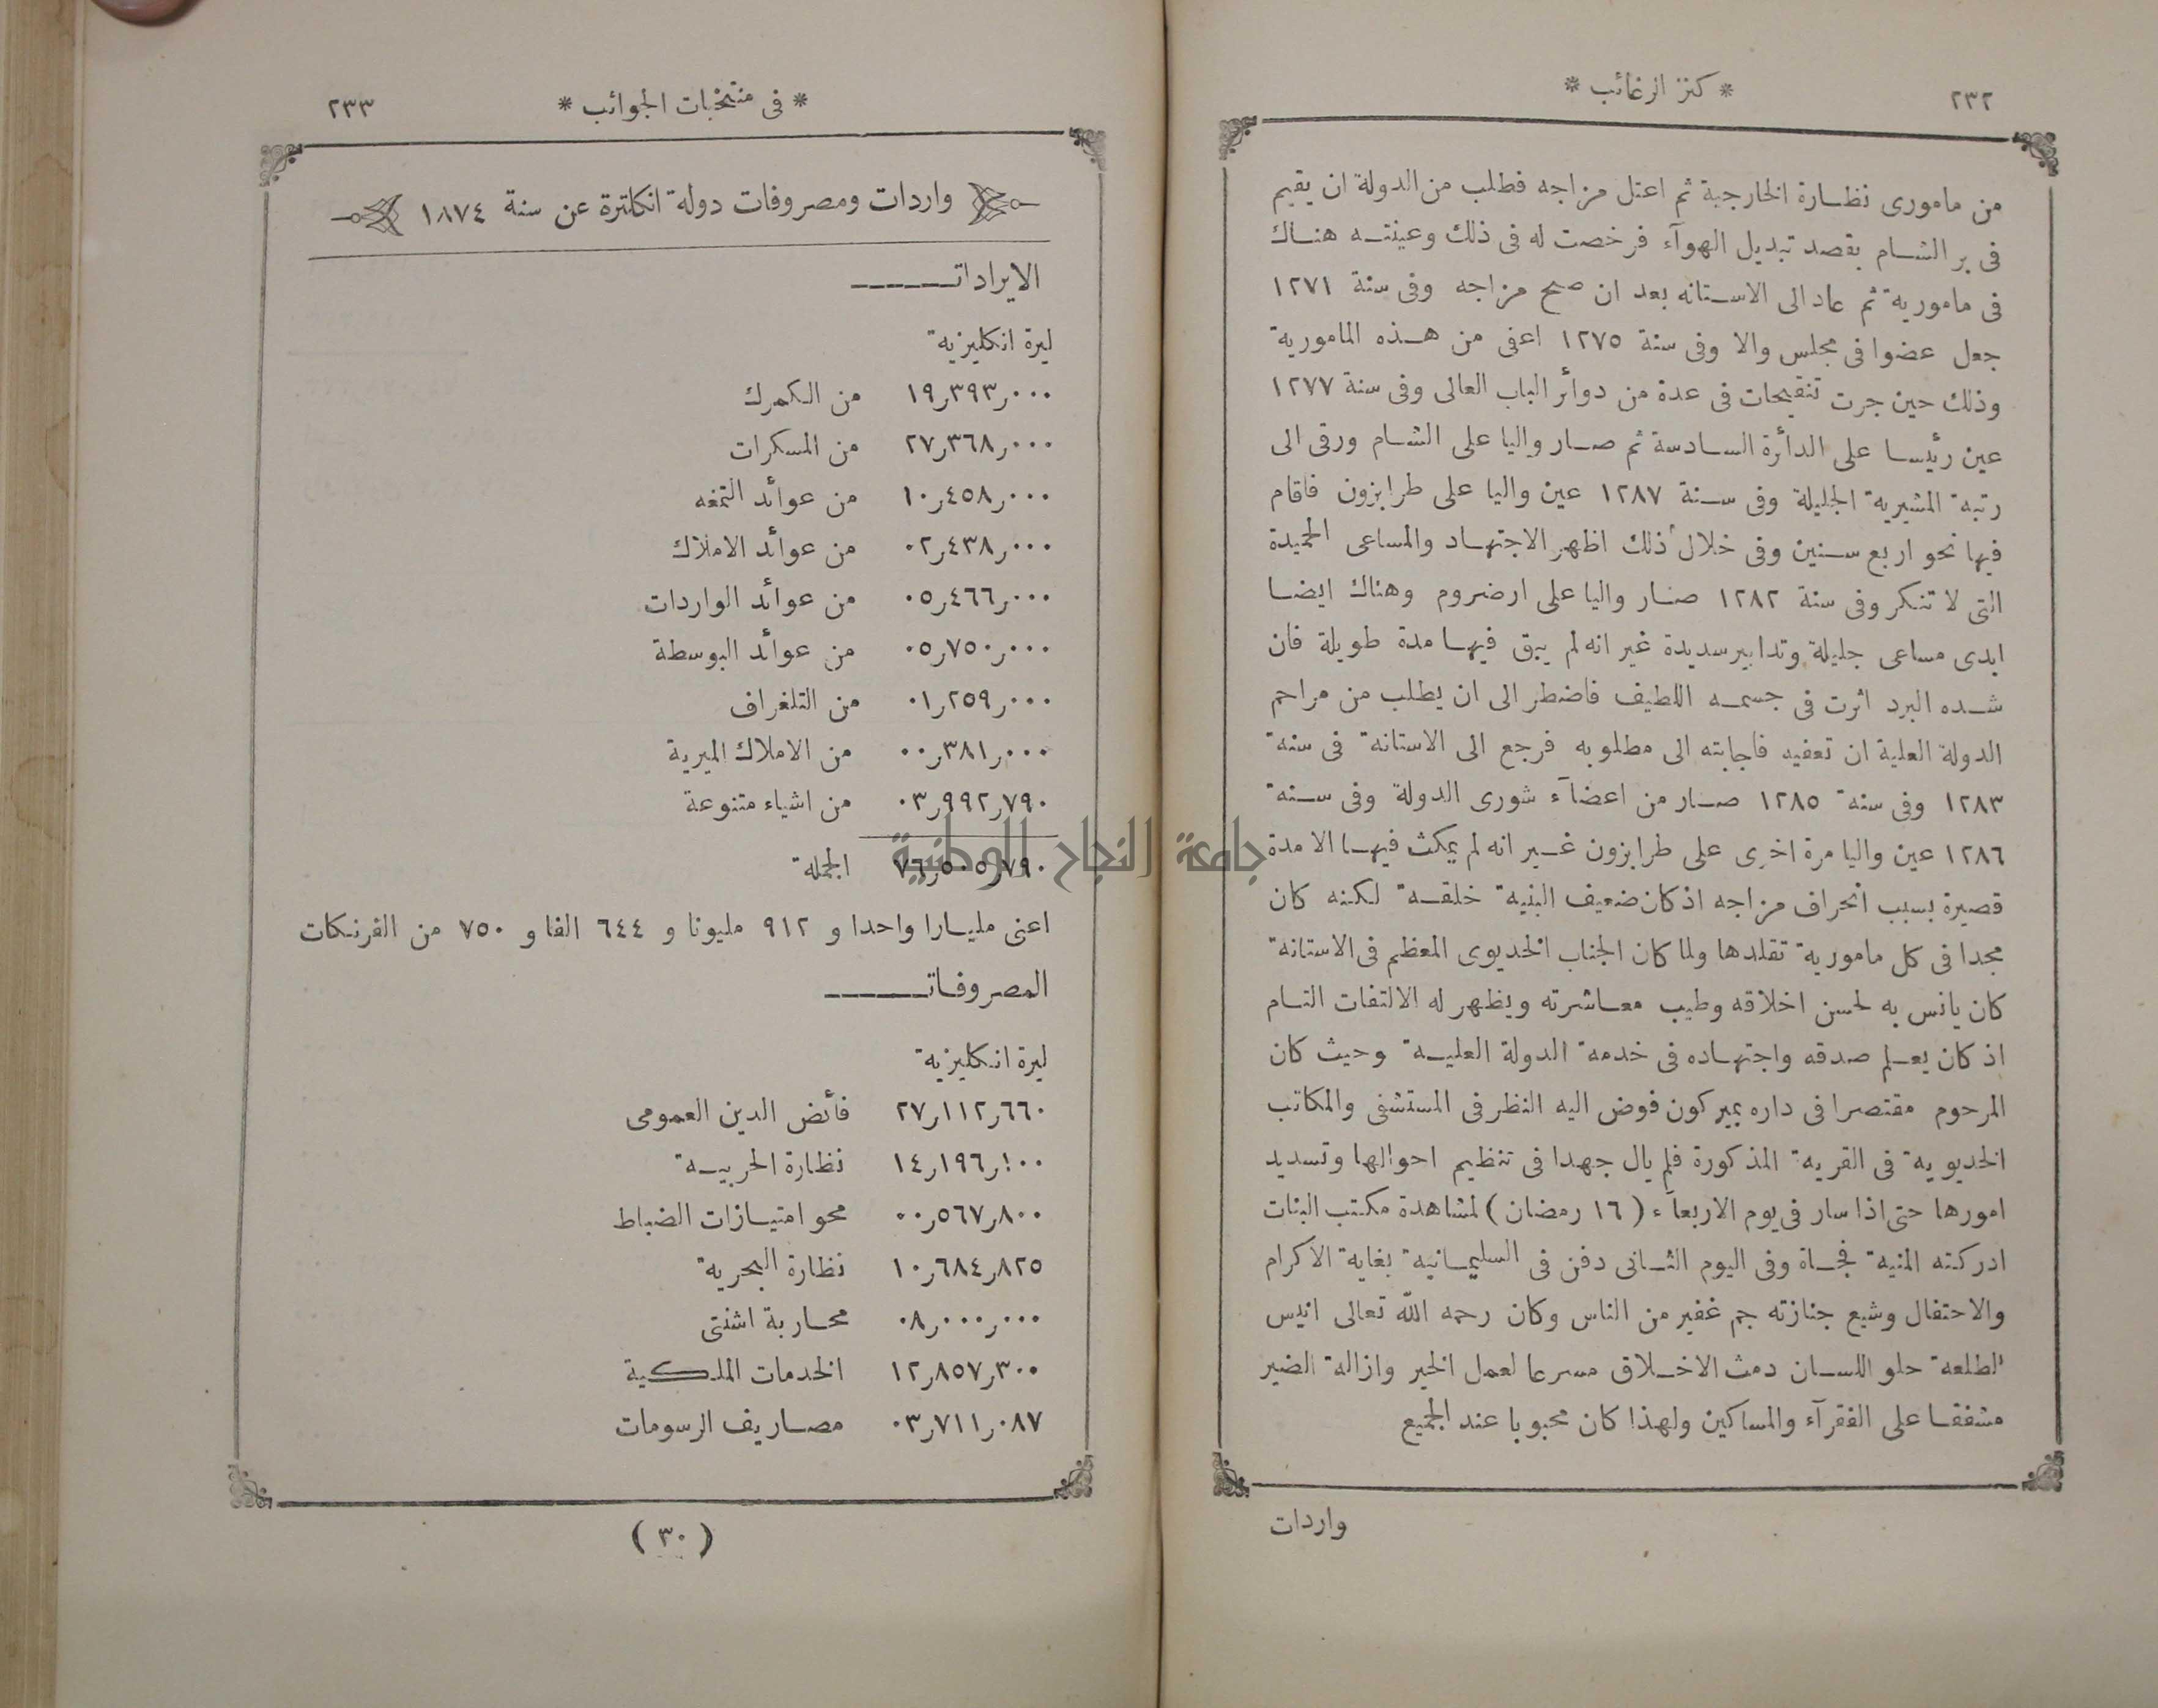 ٢٣٢
* كنز الرغائب *
من مامورى نظارة الخارجية ثم اعتل مزاجه فطلب من الدولة ان يقيم
فى بر الشام بقصد تبديل الهوآء فرخصت له فى ذلك وعينته هناك
فى مامورية ثم عاد الى الاستانه بعد ان صح مزاجه وفى سنة ١٢٧١
جعل عضوا فى مجلس والا وفى سنة ١٢٧٥ اعفى من هذه المامورية
وذلك حين جرت تنقيحات فى عدة من دوائر الباب العالى وفى سنة ١٢٧٧
عين رئيسا على الدائرة السادسة ثم صار واليا على الشام ورقى الى
رتبة المشيرية الجليلة وفى سنة ١٢٨٧ عين واليا على طرابزون فاقام
فيها نحو اربع سنين وفى خلال ذلك اظهر الاجتهاد والمساعى الحميدة
التى لا تنكر وفى سنة ١٢٨٢ صار واليا على ارضروم وهناك ايضا
ابدى مساعى جليلة وتدابير سديدة غير انه لم يبق فيها مدة طويلة فان
شده البرد اثرت فى جسمه اللطيف فاضطر الى ان يطلب من مراحم
الدولة العلية ان تعفيه فاجابته الى مطلوبه فرجع الى الاستانة فى سنة
١٢٨٣ وفى سنة ١٢٨٥ صار من اعضآء شورى الدولة وفى سنة
١٢٨٦ عين واليا مرة اخرى على طرابزون غير انه لم يمكث فيها الا مدة
قصيرة بسبب انحراف مزاجه اذ كان ضعيف البنية خلقة لكنه كان
مجدا فى كل مامورية تقلدها ولما كان الجناب الخديوى المعظم فى الاستانة
كان يانس به لحسن اخلاقه وطيب معاشرته ويظهر له الالتفات التام
اذ كان يعلم صدقه واجتهاده فى خدمة الدولة العلية وحيث كان
المرحوم مقتصرا فى داره بميركون فوض اليه النظر فى المستشفى والمكاتب
الخديوية فى القرية المذكورة فلم يال جهدا فى تنظيم احوالها وتسديد
امورها حتى اذا سار فى يوم الاربعآء (١٦ رمضان) لمشاهدة مكتب البنات
ادركته المنية فجاة وفى اليوم الثانى دفن فى السليمانية بغاية الاكرام
والاحتفال وشيع جنازته جم غفير من الناس وكان رحمه الله تعالى انيس
الطلعة حلو اللسان دمث الاخلاق مسرعا لعمل الخير وازالة الضير
مشفقا على الفقرآء والمساكين ولهذا كان محبوبا عند الجميع
واردات
* فى منتخبات الجوائب *
٢٣٣
واردات ومصروفات دولة انكلترة عن سنة ١٨٧٤
الايرادات
ليرة انكليزية
١٩٫٣٩٣٫٠٠٠ من الكمرك
٢٧٫٣٦٨٫٠٠٠ من المسكرات
١٠٫٤٥٨٫٠٠٠ من عوائد التمغه
٠٢٫٤٣٨٫٠٠٠ من عوائد الاملاك
٠٥٫٤٦٦٫٠٠٠ من عوائد الواردات
٠٥٫٧٥٠٫٠٠٠ من عوائد البوسطة
٠١٫٢٥٩٫٠٠٠ من التلغراف
٠٠٫٣٨١٫٠٠٠ من الاملاك الميرية
٠٣٫٩٩٢٫٧٩٠ من اشياء متنوعة
٧٦٫٥٠٥٫٧٩٠ الجملة
جامعة النجاح الوطنية
اعنى مليارا واحدا و ٩١٢ مليونا و ٦٤٤ الفا و ٧٥٠ من الفرنكات
المصروفات
ليرة انكليزية
٢٧٫١١٢٫٦٦٠ فائض الدين العمومى
١٤٫١٩٦٫١٠٠ نظارة الحربية
٠٠٫٥٦٧٫٨٠٠ محو امتيازات الضباط
١٠٫٦٨٤٫٨٢٥ نظارة البحرية
٠٨٫٠٠٠٫٠٠٠ محاربة اشنتى
١٢٫٨٥٧٫٣٠٠ الخدمات الملكية
٠٣٫٧١١٫٠٨٧ مصاريف الرسومات
(٣٠)